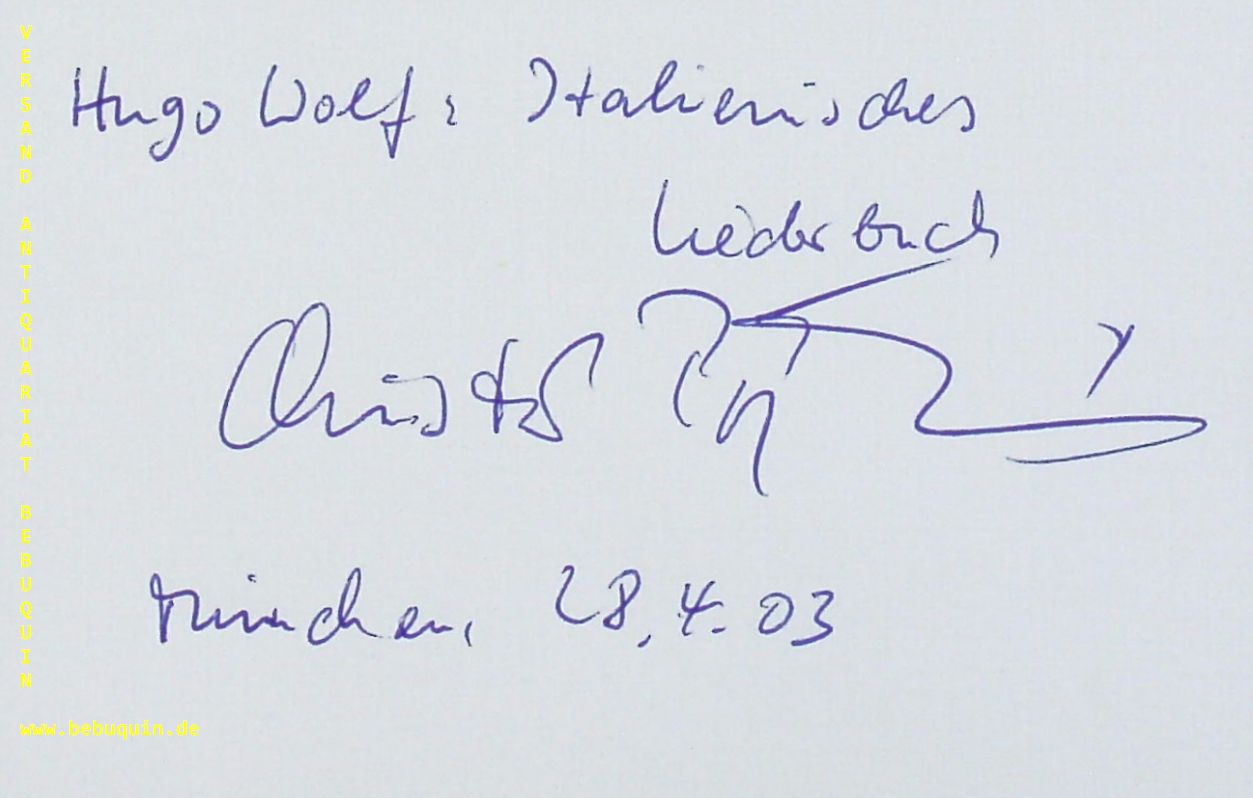 Hugo Wolf: Italienisches
Liederbuch
Christof
München, 28.4.03
VERSAND ANTIQUARIAT BEBUQUIN
www.bebuquin.de